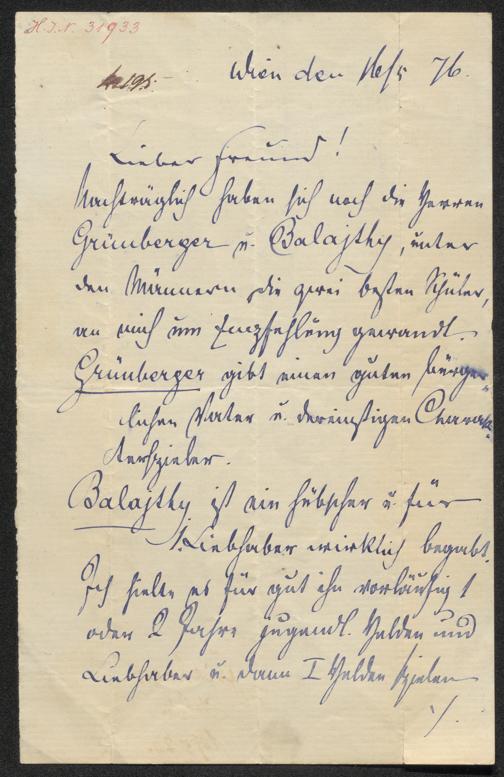 H.I.N. 31933
Wien den 16/5 76.
Lieber Freund!
Nachträglich haben sich noch die Herren
Grünberger u. Balajthy, unter
den Männern die zwei besten Schüler,
an mich um Empfehlung gewandt.
Grünberger gibt einen guten bürger-
lichen Vater u. dereinstigen Charak-
terspieler.
Balajthy ist ein hübscher u. für
I. Liebhaber wirklich begabt.
Ich hielte es für gut ihn vorläufig 1
oder 2 Jahre jugendl. Helden und
Liebhaber u. dann I Helden spielen
./.